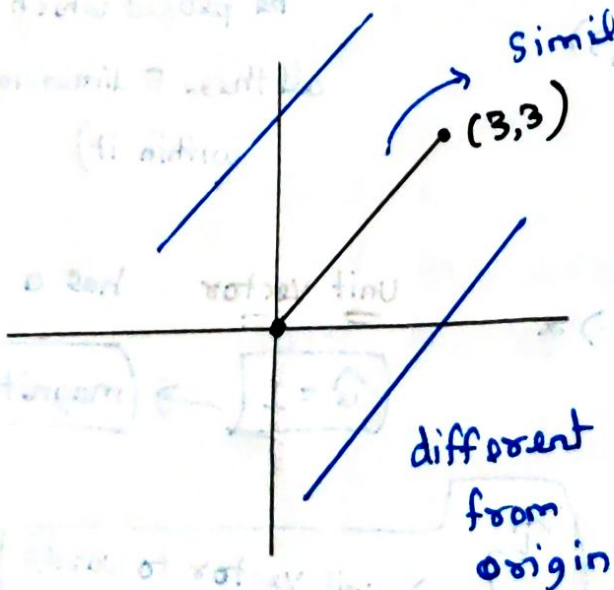 simil
(3,3)
different
from
origin